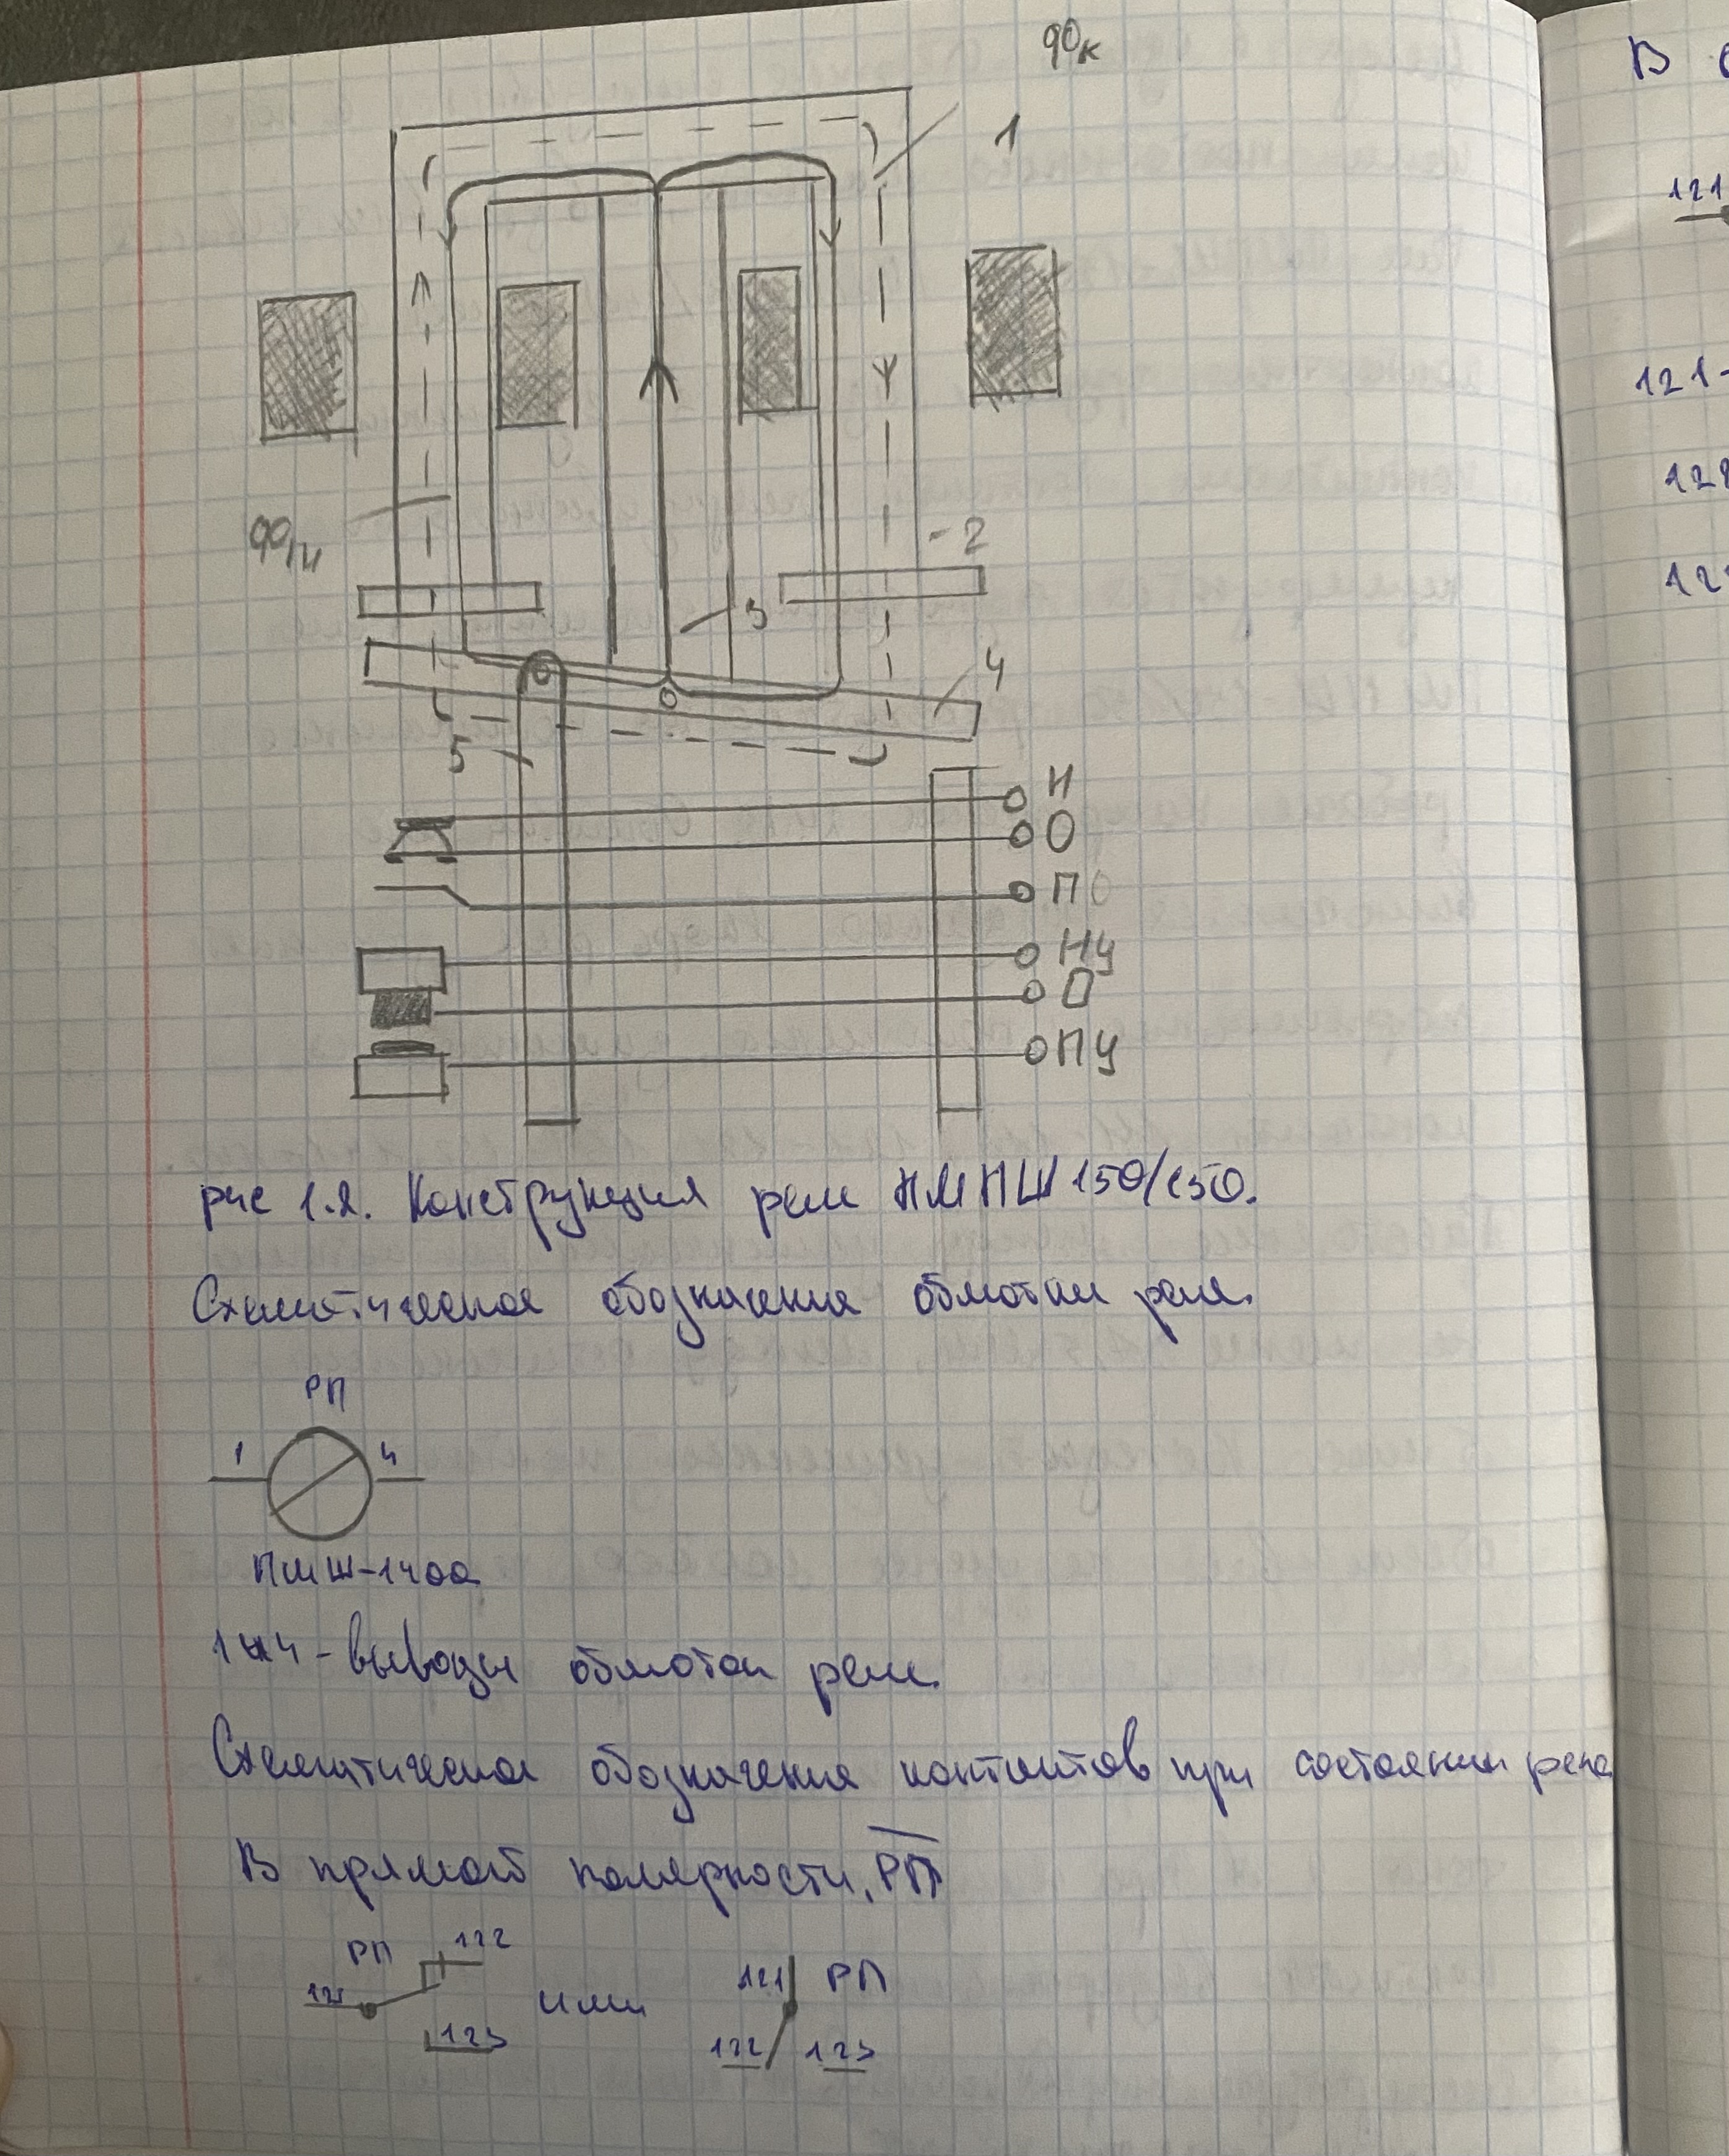 1
2
3
4
5
Н
О
П
НУ
О
ПУ
рис 1.2. Конструкция реле ПМПШ 150/150.
Схематическое обозначение обмотки реле.
РП
1 4
ПМШ-1400
1 и 4 - выводы обмотки реле.
Схематическое обозначение контактов при состоянии реле
В прямой полярности, РП
РП 122
121 или 121 РП
123 122 123
В
121
121-
12